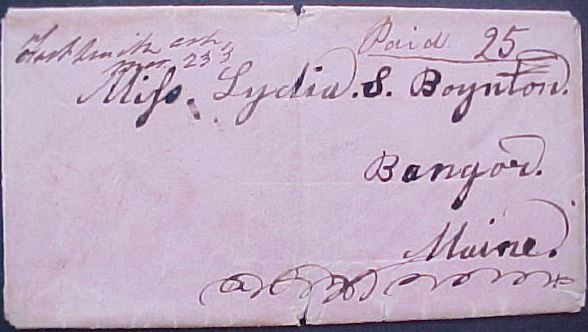 Fort Smith Ark
Mar. 23
Paid 25
Miss. Lydia. S. Boynton.
Bangor.
Maine.